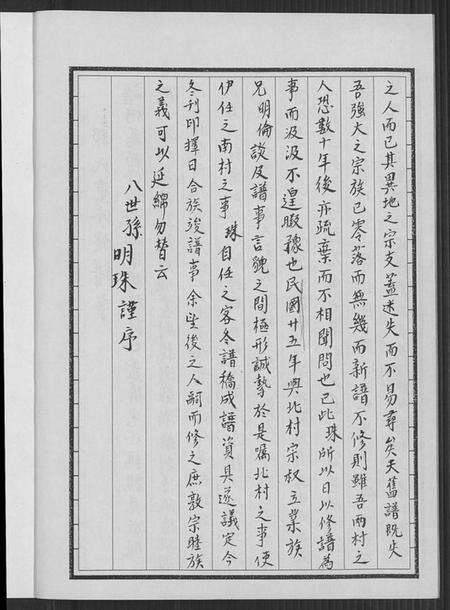 之人而已其異地之宗支蓋迷失而不易尋矣夫舊譜既失
吾強大之宗族已零落而無幾而新譜不修則雖吾兩村之
人恐數十年後亦疏棄而不相聞問也已此珠所以日以修譜為
事而汲汲不遑暇豫也民國廿五年與北村宗叔立業族
兄明倫談及譜事言貌之間極形誠摯於是囑北村之事使
伊任之南村之事珠自任之客冬譜稿成譜資具遂議定今
冬刊印擇日合族竣譜事余望後之人嗣而修之庶敦宗睦族
之義可以延綿勿替云
八世孫明珠謹序